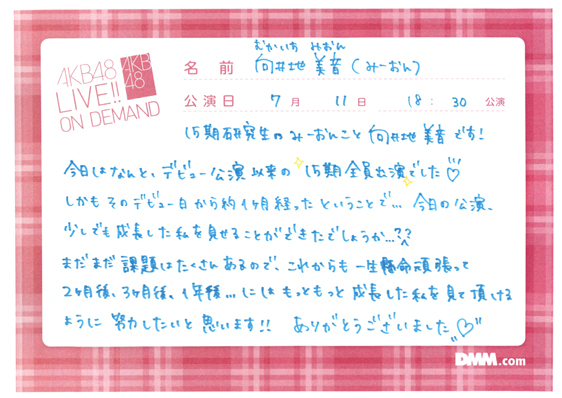 AKB48
LIVE!!
ON DEMAND
AKB
48
むかいち みおん
名 前 向井地 美音 (みーおん)
公演日 7月 11日 18:30 公演
15期研究生のみーおんこと向井地美音です!
今日はなんと、デビュー公演以来の15期全員出演でした♡
しかもそのデビュー日から約1ヶ月経ったということで…今日の公演、
少しでも成長した私を見せることができたでしょうか…??
まだまだ課題はたくさんあるので、これからも一生懸命頑張って
2ヶ月後、3ヶ月後、1年後…にはもっともっと成長した私を見て頂ける
ように努力したいと思います!! ありがとうございました♡
DMM.com